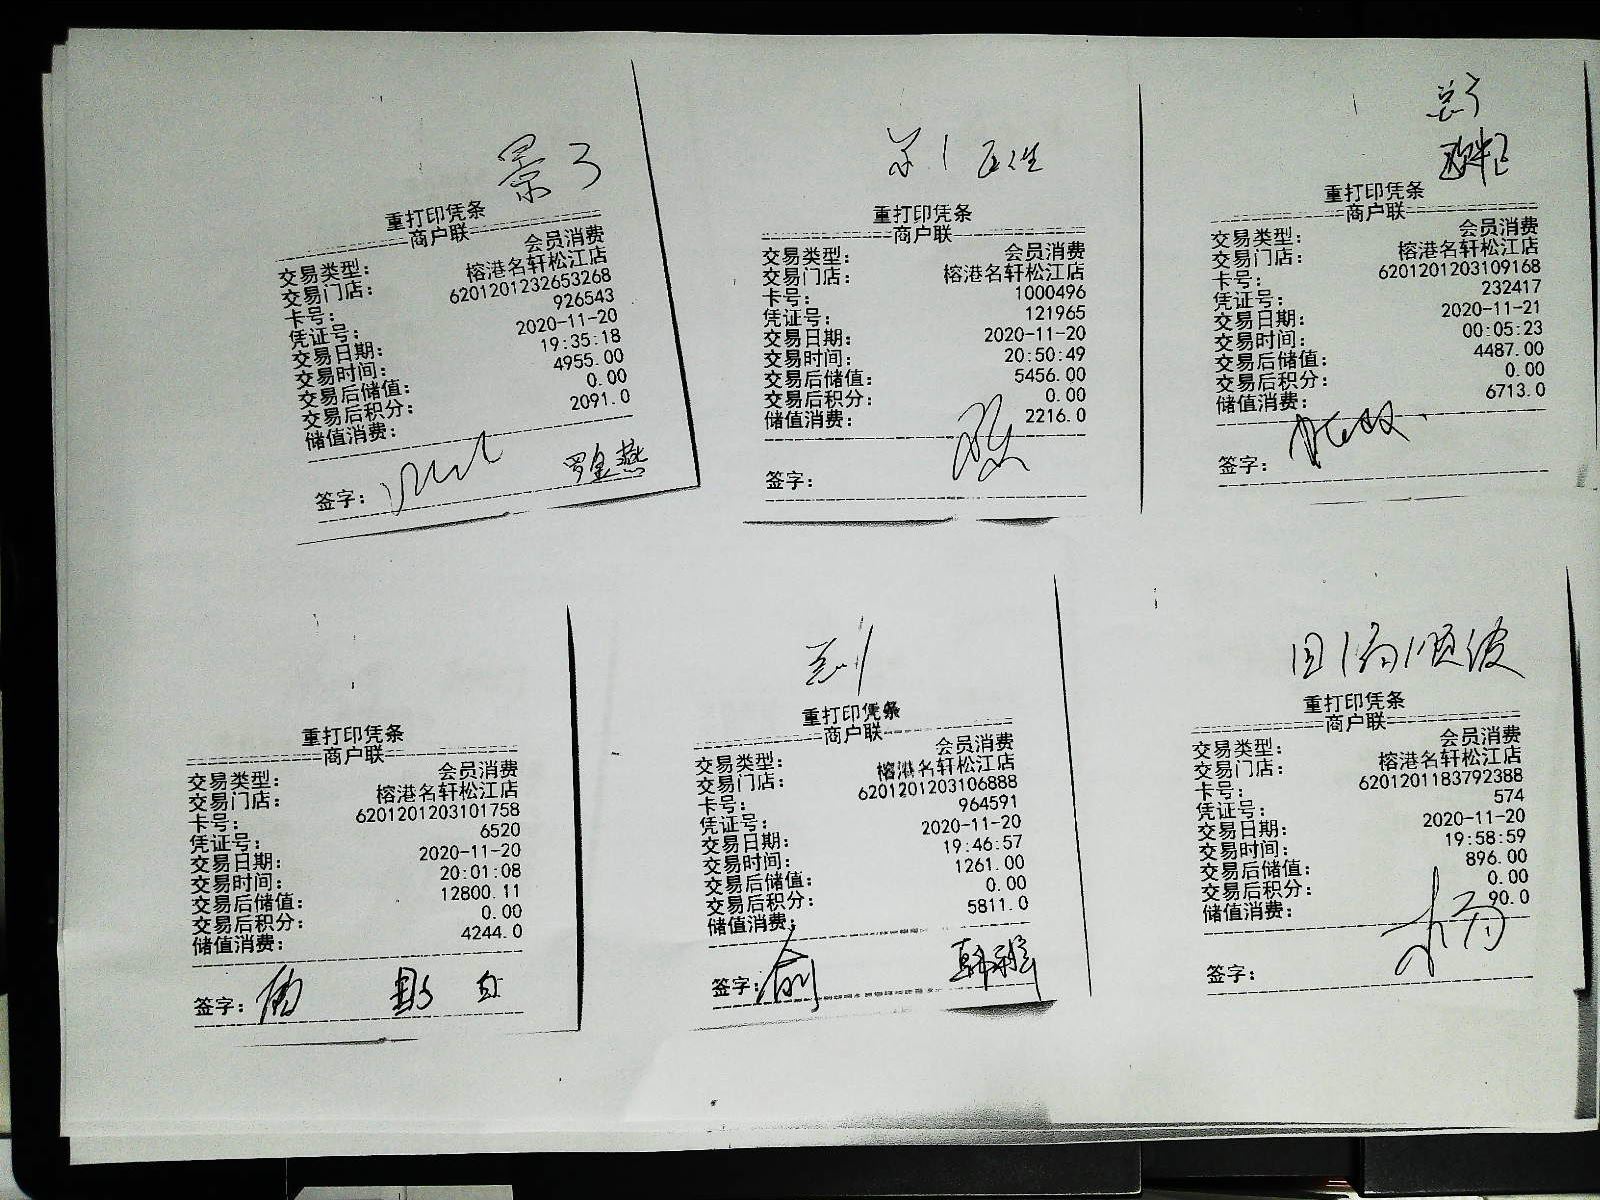 重打印凭条
商户联
交易类型： 会员消费
交易门店： 榕港名轩松江店
卡号： 6201201232653268
凭证号： 926543
交易日期： 2020-11-20
交易时间： 19:35:18
交易后储值： 4955.00
交易后积分： 0.00
储值消费： 2091.0
签字： 罗金燕
重打印凭条
商户联
交易类型： 会员消费
交易门店： 榕港名轩松江店
卡号： 1000496
凭证号： 121965
交易日期： 2020-11-20
交易时间： 20:50:49
交易后储值： 5456.00
交易后积分： 0.00
储值消费： 2216.0
签字：
重打印凭条
商户联
交易类型： 会员消费
交易门店： 榕港名轩松江店
卡号： 6201201203109168
凭证号： 232417
交易日期： 2020-11-21
交易时间： 00:05:23
交易后储值： 4487.00
交易后积分： 0.00
储值消费： 6713.0
签字：
重打印凭条
商户联
交易类型： 会员消费
交易门店： 榕港名轩松江店
卡号： 6201201203101758
凭证号： 6520
交易日期： 2020-11-20
交易时间： 20:01:08
交易后储值： 12800.11
交易后积分： 0.00
储值消费： 4244.0
签字：
重打印凭条
商户联
交易类型： 会员消费
交易门店： 榕港名轩松江店
卡号： 6201201203106888
凭证号： 964591
交易日期： 2020-11-20
交易时间： 19:46:57
交易后储值： 1261.00
交易后积分： 0.00
储值消费： 5811.0
签字：
重打印凭条
商户联
交易类型： 会员消费
交易门店： 榕港名轩松江店
卡号： 6201201183792388
凭证号： 574
交易日期： 2020-11-20
交易时间： 19:58:59
交易后储值： 896.00
交易后积分： 0.00
储值消费： 90.0
签字：